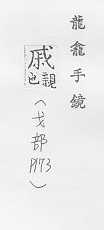 龍龕手鏡
戚 親也
(戈部
P173)